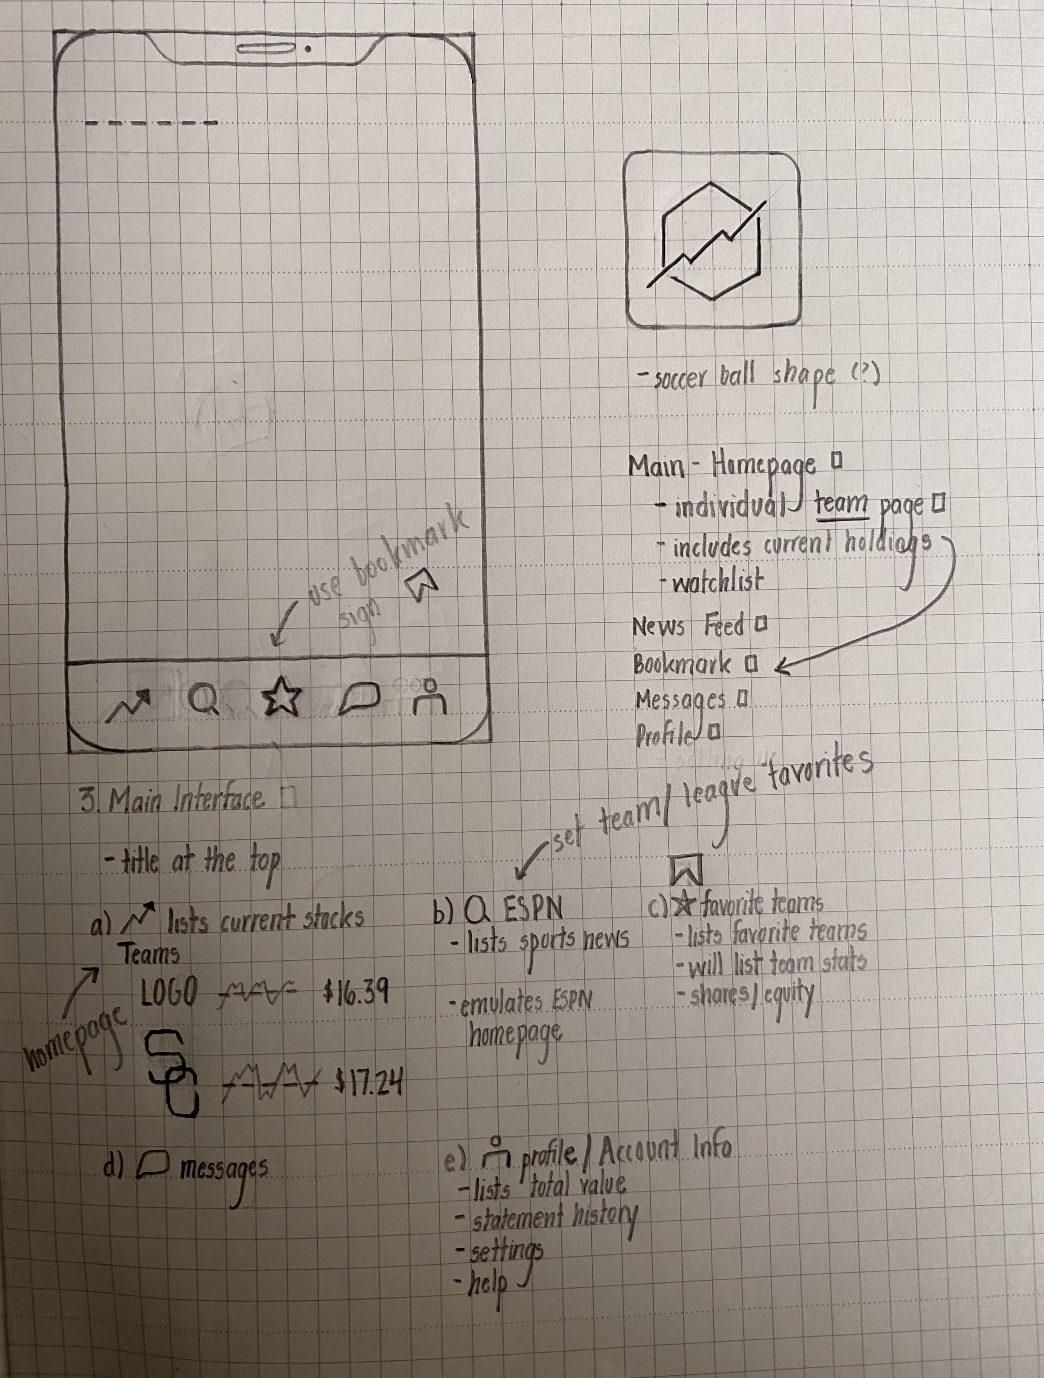 - soccer ball shape (?)
Main - Homepage
- individual team page
- includes current holdings
- watchlist
News Feed
Bookmark
Messages
Profile
use bookmark
sign
3. Main Interface
- title at the top
set team/league favorites
a) lists current stocks
Teams
LOGO $16.39
homepage
SC $17.24
b) ESPN
- lists sports news
- emulates ESPN
homepage
c) favorite teams
- lists favorite teams
- will list team stats
- shares/equity
d) messages
e) profile/Account Info
- lists total value
- statement history
- settings
- help